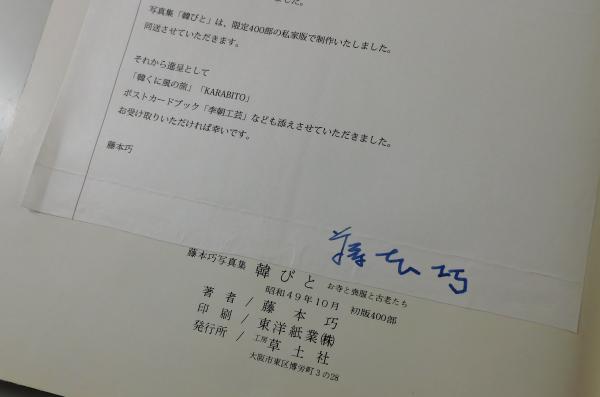 ました。
写真集「韓びと」は、限定400部の私家版で制作いたしました。
同送させていただきます。
それから進呈として
「韓くに風の旅」「KARABITO」
ポストカードブック「李朝工芸」なども添えさせていただきました。
お受け取りいただければ幸いです。
藤本巧
藤本巧
藤本巧写真集 韓びと お寺と喪服と古老たち
昭和49年10月 初版400部
著者/藤本巧
印刷/東洋紙業㈱
発行所/工房草土社
大阪市東区博労町3の28